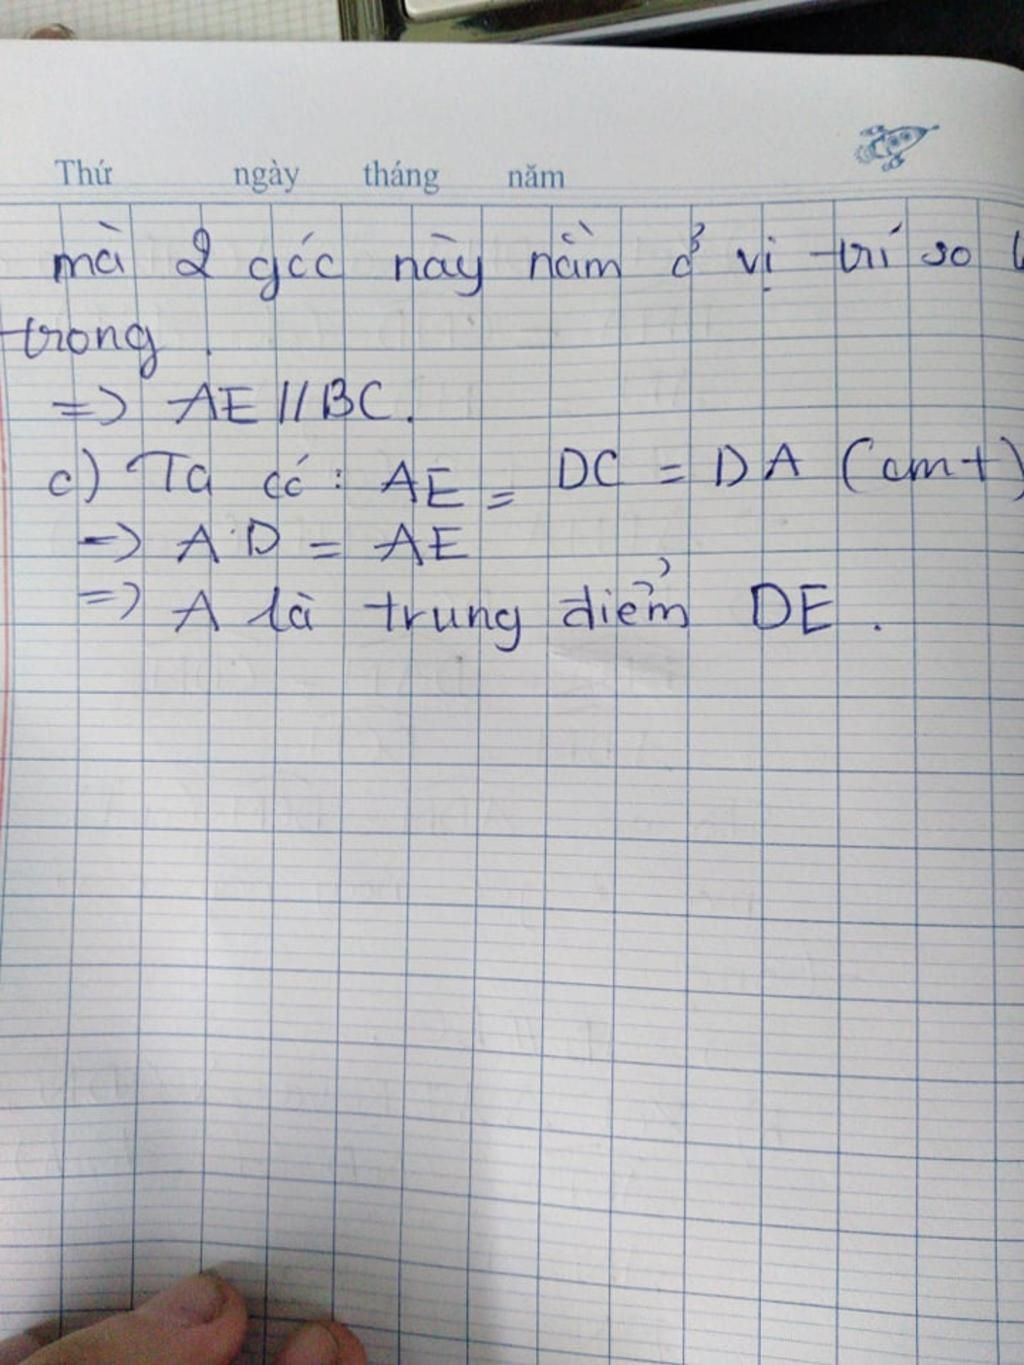 Thứ ngày tháng năm
mà 2 góc này nằm ở vị trí so l
trong.
=> AE // BC.
c) Ta có: AE = DC = DA (cmt)
=> AD = AE
=> A là trung điểm DE.